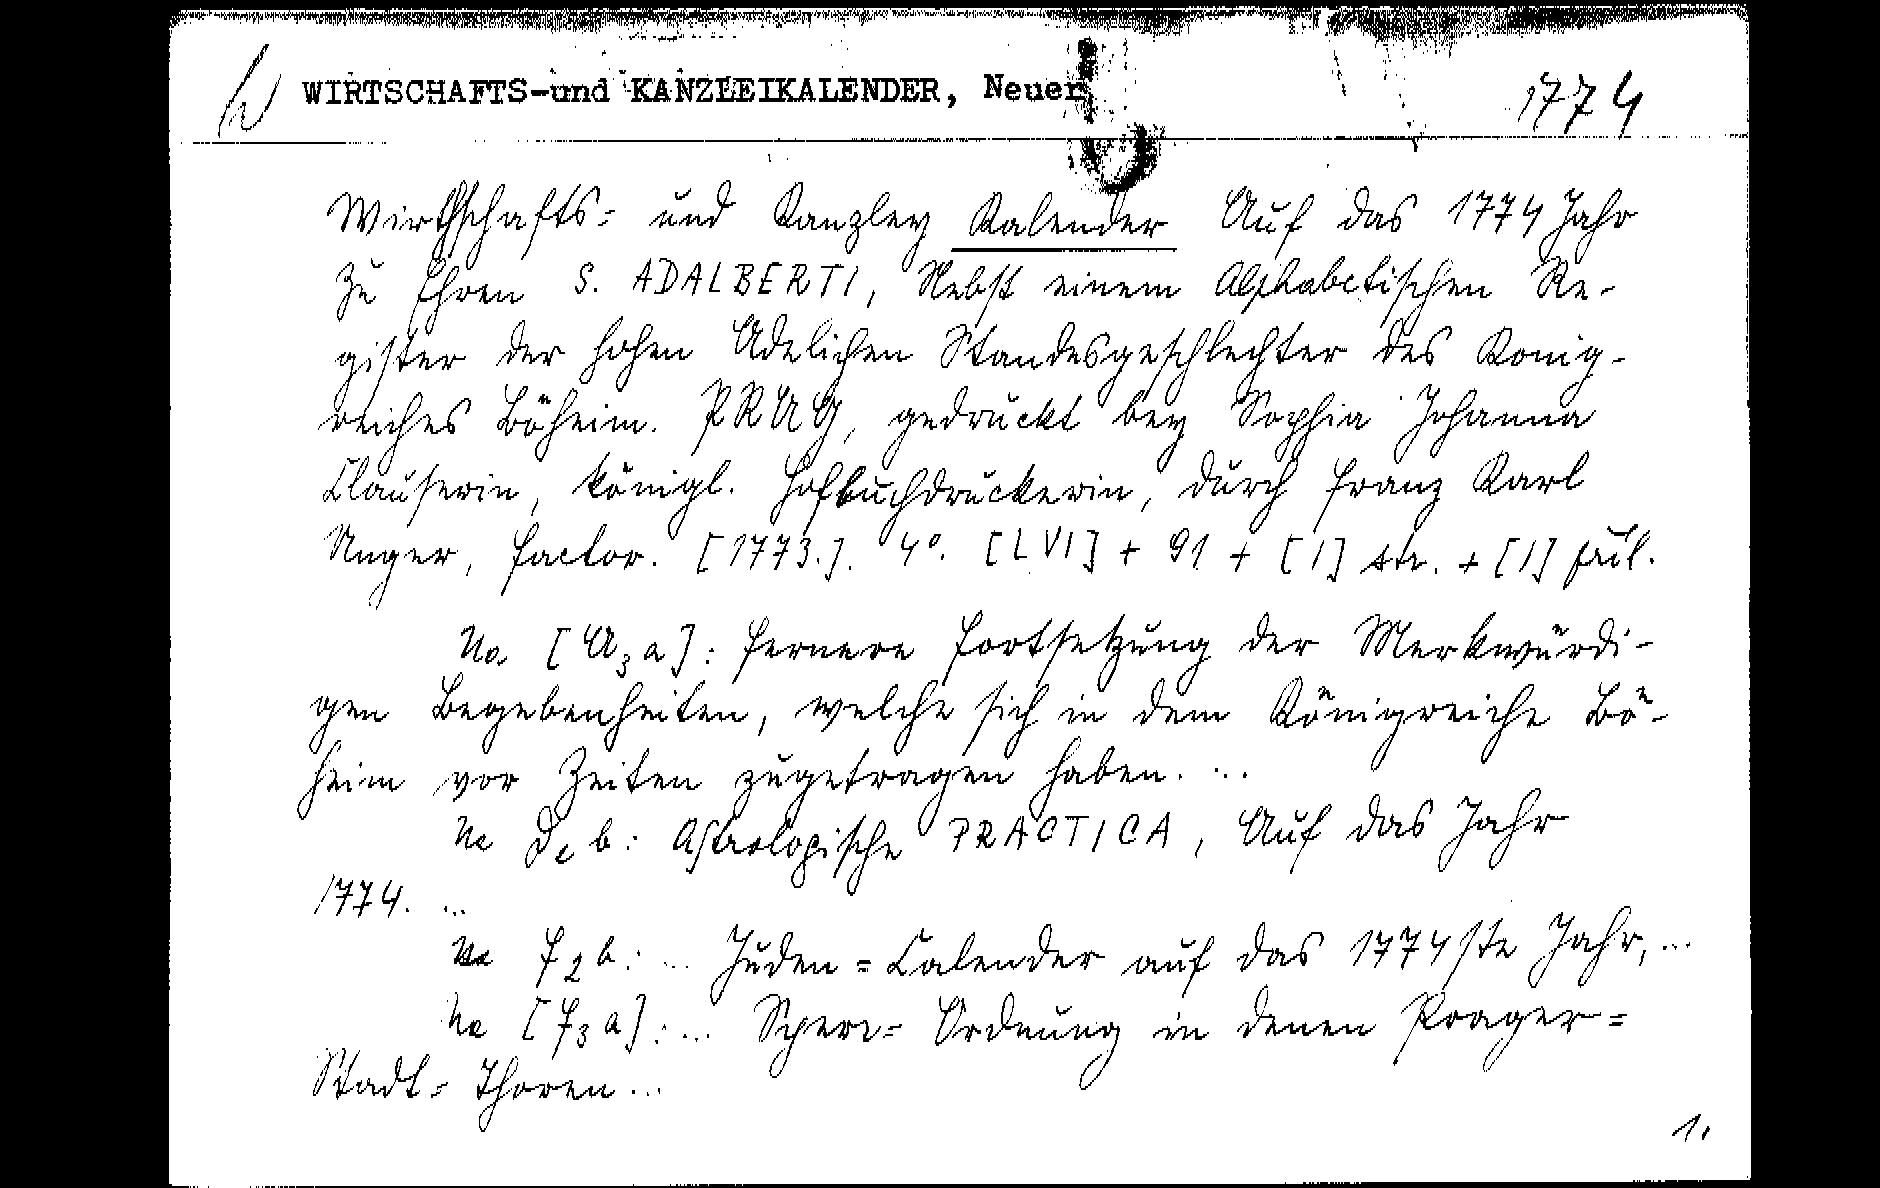 WIRTSCHAFTS-und KANZLEIKALENDER, Neuer 1774
Wirthschafts= und Kanzley Kalender Auf das 1774 Jahr
zu Ehren S. ADALBERTI, Nebst einem Alphabetischen Re-
gister der hohen Adelichen Standesgeschlechter des König-
reiches Böheim. PRAG, gedruckt bey Sophia Johanna
Clauserin, königl. Hofbuchdruckerin, durch Franz Karl
Unger, Factor. [1773.]. 4°. [LVI] + 91 + [1] str. + [1] příl.
Na [A3a]: Fernere Fortsetzung der Merkwürdi-
gen Begebenheiten, welche sich in dem Königreiche Bö-
heim vor Zeiten zugetragen haben. ...
Na b: Astrologische PRACTICA, Auf das Jahr
1774. ...
Na F2b: ... Juden=Calender auf das 1774ste Jahr, ...
Na [F3a]: ... Sperr= Ordnung in denen Prager=
Stadt= Thoren ...
1.